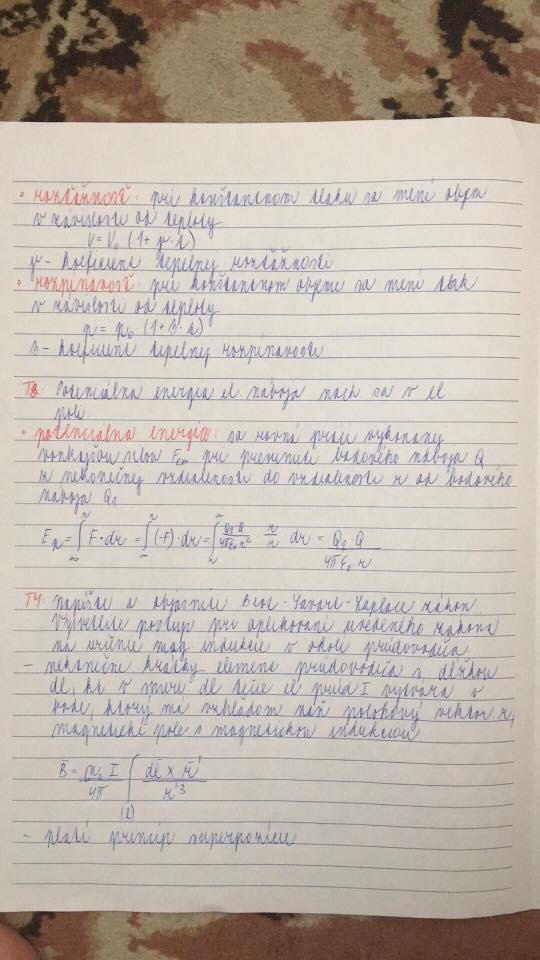 • rozťažnosť: pri konštantnom tlaku sa mení objem
v závislosti od teploty
V = V₀ (1 + γ · t)
γ - koeficient tepelnej rozťažnosti
• rozpínavosť: pri konštantnom objeme sa mení tlak
v závislosti od teploty
p = p₀ (1 + β · t)
β - koeficient tepelnej rozpínavosti
T3: Potenciálna energia el. náboja nach sa v el
poli.
• potenciálna energia: sa rovná práci vykonanej
vonkajšou silou při premiestnení bodového náboja Q
z nekonečnej vzdialenosti do vzdialenosti r od bodového
náboja Q₁
Eₚ = ∫ F · dr = ∫ (-F) · dr = ∫ Q₁ Q / 4πε₀ r² r/r dr = Q₁ Q / 4πε₀ r
T4: napíšte a objasnite Biot-Savart-Laplace zákon.
Vysvetlite postup pri aplikovaní uvedeného zákona
na určenie mag indukcie v okolí prúdovodiča
- nekonečne krátky element prúdovodiča s dĺžkou
dl, kt v smere dl tečie el prúd I vytvára v
bode, ktorý má vzhľadom naň polohový vektor r,
magnetické pole s magnetickou indukciou
B̄ = μ₀ I / 4π ∫(l) dl̄ × r̄' / r'³
- platí princíp superpozície